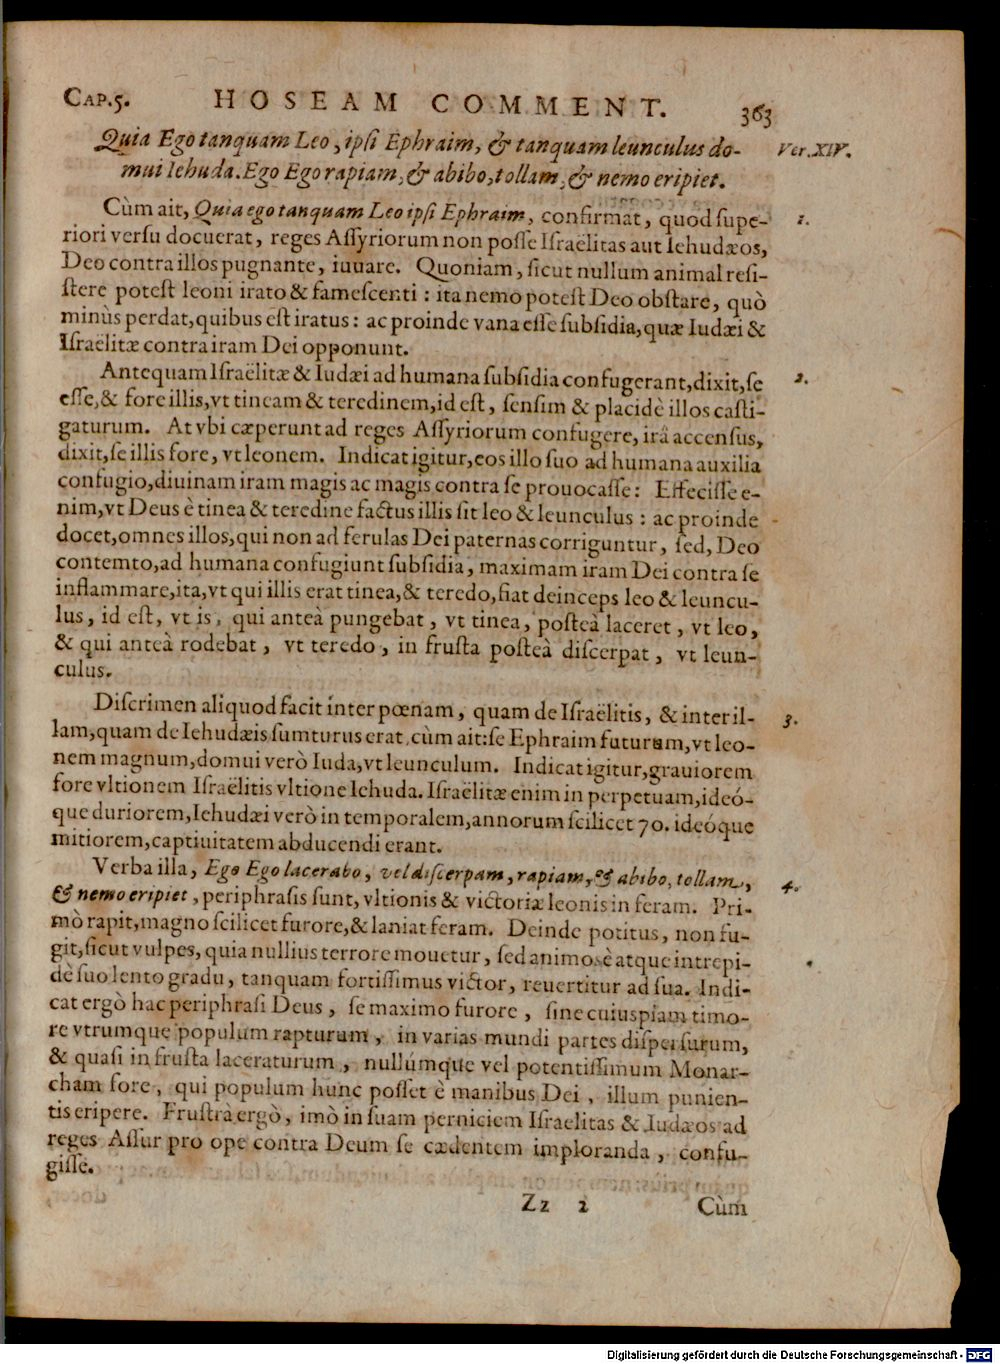 CAP.5. HOSEAM COMMENT. 363
Quia Ego tanquam Leo, ipſi Ephraim, & tanquam leunculus do- Ver. XIV.
mui Iehuda. Ego Ego rapiam, & abibo, tollam, & nemo eripiet.
Cùm ait, Quia ego tanquam Leo ipſi Ephraim, confirmat, quod ſupe- 1.
riori verſu docuerat, reges Aſſyriorum non poſſe Iſraëlitas aut Iehudæos,
Deo contra illos pugnante, iuuare. Quoniam, ſicut nullum animal reſi-
ſtere poteſt leoni irato & fameſcenti: ita nemo poteſt Deo obſtare, quò
minùs perdat, quibus eſt iratus: ac proinde vana eſſe ſubſidia, quæ Iudæi &
Iſraëlitæ contra iram Dei opponunt.
Antequam Iſraëlitæ & Iudæi ad humana ſubſidia confugerant, dixit, ſe 2.
eſſe, & fore illis, vt tineam & teredinem, id eſt, ſenſim & placidè illos caſti-
gaturum. At vbi cæperunt ad reges Aſſyriorum confugere, irâ accenſus,
dixit, ſe illis fore, vt leonem. Indicat igitur, eos illo ſuo ad humana auxilia
confugio, diuinam iram magis ac magis contra ſe prouocaſſe: Effeciſſe e-
nim, vt Deus è tinea & teredine factus illis ſit leo & leunculus: ac proinde
docet, omnes illos, qui non ad ferulas Dei paternas corriguntur, ſed, Deo
contemto, ad humana confugiunt ſubſidia, maximam iram Dei contra ſe
inflammare, ita, vt qui illis erat tinea, & teredo, fiat deinceps leo & leuncu-
lus, id eſt, vt is, qui anteà pungebat, vt tinea, poſteà laceret, vt leo,
& qui anteà rodebat, vt teredo, in fruſta poſteà diſcerpat, vt leun-
culus.
Diſcrimen aliquod facit inter pœnam, quam de Iſraëlitis, & inter il- 3.
lam, quam de Iehudæis ſumturus erat, cùm ait: ſe Ephraim futurum, vt leo-
nem magnum, domui verò Iuda, vt leunculum. Indicat igitur, grauiorem
fore vltionem Iſraëlitis vltione Iehuda. Iſraëlitæ enim in perpetuam, ideó-
que duriorem, Iehudæi verò in temporalem, annorum ſcilicet 70. ideóque
mitiorem, captiuitatem abducendi erant.
Verba illa, Ego Ego lacerabo, vel diſcerpam, rapiam, & abibo, tollam, 4.
& nemo eripiet, periphraſis ſunt, vltionis & victoriæ leonis in feram. Pri-
mò rapit, magno ſcilicet furore, & laniat feram. Deinde potitus, non fu-
git, ſicut vulpes, quia nullius terrore mouetur, ſed animosè atque intrepi-
dè ſuo lento gradu, tanquam fortiſſimus victor, reuertitur ad ſua. Indi-
cat ergò hac periphraſi Deus, ſe maximo furore, ſine cuiuspiam timo-
re vtrumque populum rapturum, in varias mundi partes diſperſurum,
& quaſi in fruſta laceraturum, nullúmque vel potentiſſimum Monar-
cham fore, qui populum hunc poſſet è manibus Dei, illum punien-
tis eripere. Fruſtrà ergò, imò in ſuam perniciem Iſraelitas & Iudæos ad
reges Aſſur pro ope contra Deum ſe cædentem imploranda, confu-
giſſe.
Zz 2 Cùm
Digitalisierung gefördert durch die Deutsche Forschungsgemeinschaft - DFG